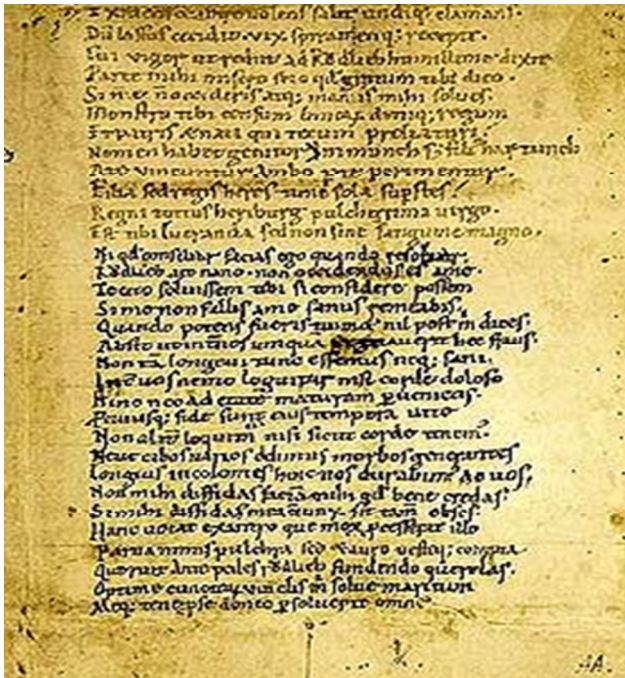 volens salit undiq; clamans.
Dū lassus cecidit. vix spiramenq; recepit.
Cui vigor ut rediit ad Rŏdlieb humillime dixit
Parce mihi misero scio qđ gratum tibi dico.
Si me ñ occideris atq; manus mihi solues.
Monstro tibi censum binoꝝ deniq; regum
Et patris & nati qui tecum preliaturi.
Nomen habet genitor Immunch s; fili' hartunch
A te vincuntur ambo perimentur.
Filia sed regis heres tunc sola sup̄stes.
Regni totius heriburg pulcherrima virgo.
Est tibi lucranda sed non sine sanguine magno.
Ni qđ consulam facias ego quando resoluar.
Rŏdlieb ait nano. non occidendus es a me.
Te cito soluissem tibi si confidere possem
Si me non fallis a me sanus remeabis.
Quando potens fueris nil post m̄ dices.
Absit ut int̄ nos unquā hec fraus.
Non tā longeui tunc essemus neq; sani.
Int̄ uos nemo loquitur nisi corde doloso
Hinc nec ad maturam ꝑuenietis.
cuiusq; fide sunt eius tempora uite
Non alit̄ loquim̄ nisi sicut corde tenem'.
Neue cibos uarios edimus morbos generantes
Longius incolomes hinc nos durabim' ac uos.
Non mihi diffidas faciā qđ bene credas.
Si mihi diffidas mea sit tam̄ obses.
Hanc uocat ex antro que mox processit
Parua nimis pulchra sed & auro uesteq; compta
Que ruit ante pedes rŏdlieb fundendo querelas.
Optime cunctoꝝ uinclis m̄ solue maritum
Meq; tene pro se donec ꝑsoluerit omne
AA.